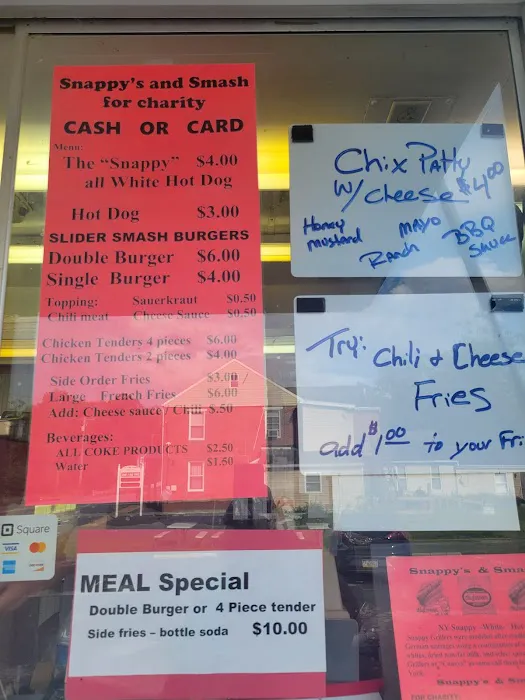 Snappy's and Smash
for charity
CASH OR CARD
Menu:
The "Snappy" $4.00
all White Hot Dog
Hot Dog $3.00
SLIDER SMASH BURGERS
Double Burger $6.00
Single Burger $4.00
Topping: Sauerkraut $0.50
Chili meat Cheese Sauce $0.50
Chicken Tenders 4 pieces $6.00
Chicken Tenders 2 pieces $4.00
Side Order Fries $3.00
Large French Fries $6.00
Add: Cheese sauce / Chili $.50
Beverages:
ALL COKE PRODUCTS $2.50
Water $1.50
Chix Patty
W/ Cheese $4.00
Honey mustard
MAYO
Ranch
BBQ Sauce
Try: Chili & Cheese
Fries
add $1.00 to your Fri
Square
VISA
MEAL Special
Double Burger or 4 Piece tender
Side fries – bottle soda $10.00
Snappy's & Sma
NY Snappy White Hot
Snappy's & S
FOR CHARITY